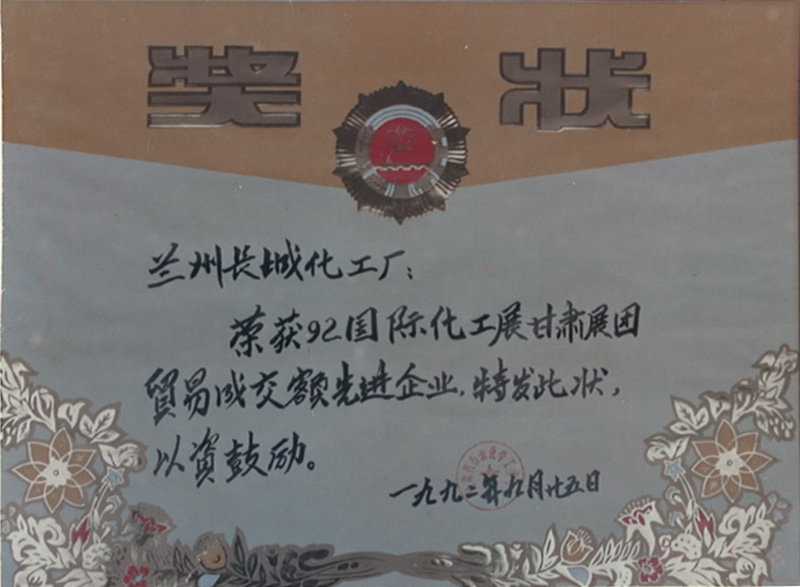 奖状
兰州长城化工厂：
荣获92国际化工展甘肃展团
貿易成交额先进企业.特发此状，
以资鼓励。
一九九二年九月廿五日